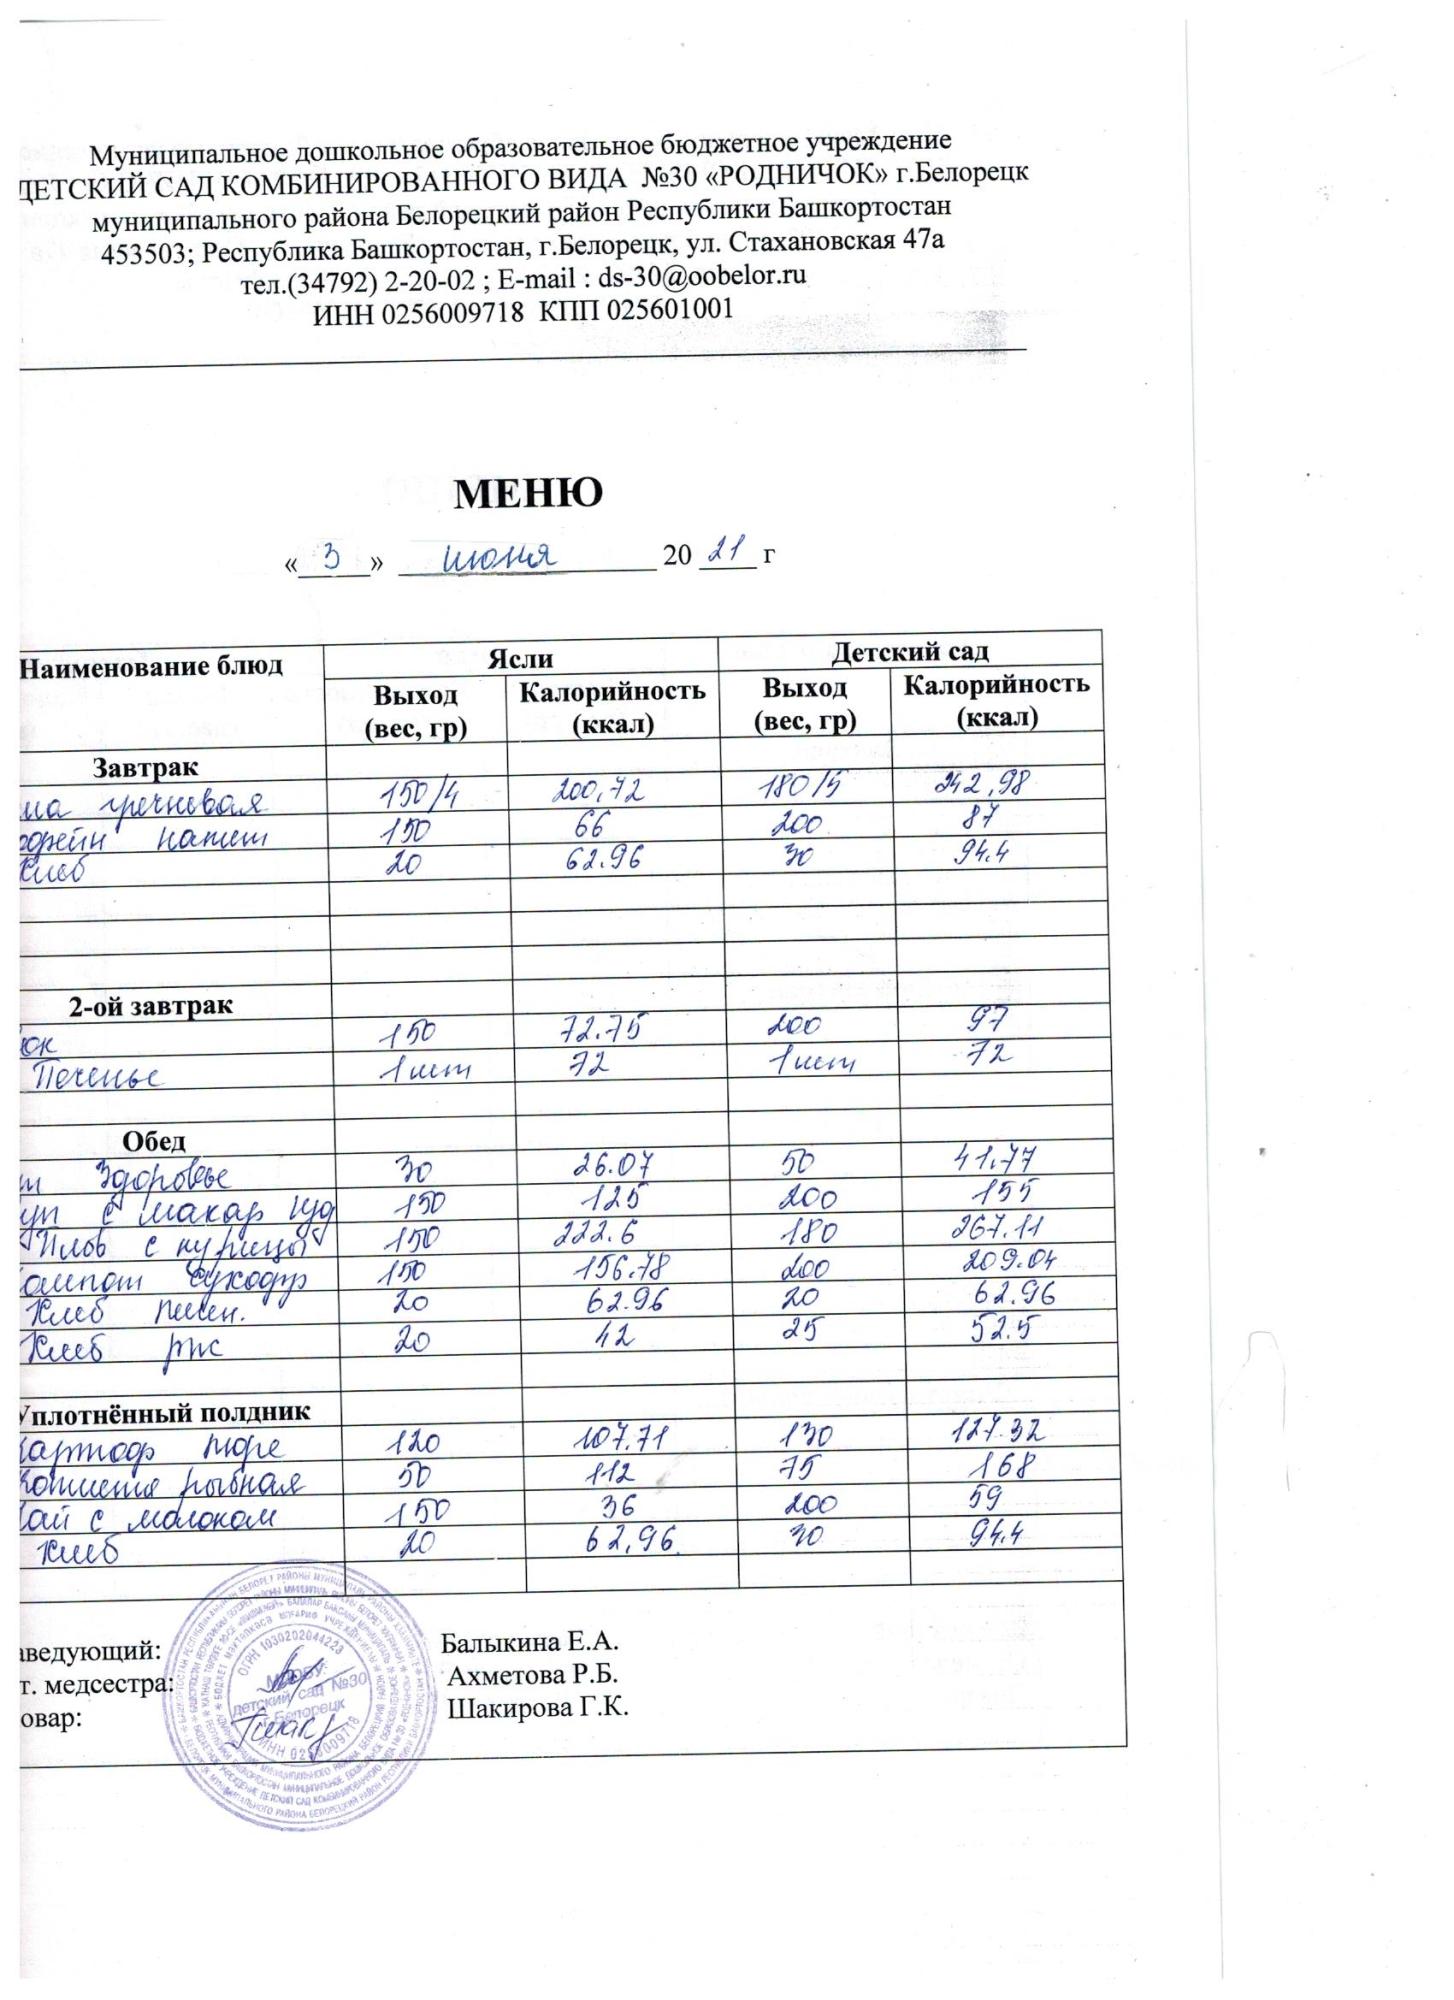 Муниципальное дошкольное образовательное бюджетное учреждение
ДЕТСКИЙ САД КОМБИНИРОВАННОГО ВИДА №30 «РОДНИЧОК» г.Белорецк
муниципального района Белорецкий район Республики Башкортостан
453503; Республика Башкортостан, г.Белорецк, ул. Стахановская 47а
тел.(34792) 2-20-02 ; E-mail : ds-30@oobelor.ru
ИНН 0256009718 КПП 025601001
МЕНЮ
« 3 » июня 20 21 г
Наименование блюд Ясли Детский сад
Выход (вес, гр) Калорийность (ккал) Выход (вес, гр) Калорийность (ккал)
Завтрак
гречневая 150/4 200,72 180/5 242,98
напит 150 66 200 87
Хлеб 20 62.96 30 94.4
2-ой завтрак
ок 150 72.75 200 97
Печенье 1 шт 72 1 шт 72
Обед
Здоровье 30 26.07 50 41.77
уп с макар изд 150 125 200 155
Плов с курицы 150 222.6 180 267.11
Компот сухофр 150 156.78 200 209.04
Хлеб пшен. 20 62.96 20 62.96
Хлеб рж 20 42 25 52.5
Уплотнённый полдник
Картоф пюре 120 107.71 130 127.32
Котлета рыбная 50 112 75 168
Чай с молоком 150 36 200 59
Хлеб 20 62,96 30 94.4
аведующий: Балыкина Е.А.
т. медсестра: Ахметова Р.Б.
овар: Шакирова Г.К.
ОГРН 1030202044223
МДОБУ
детский сад №30
г. Белорецк
ИНН 0256009718